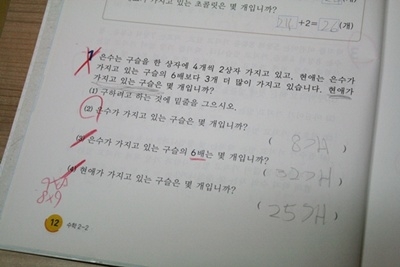 가지고 있는 초콜릿은 몇 개입니까?
24+2=26(개)
은수는 구슬을 한 상자에 4개씩 2상자 가지고 있고, 현애는 은수가
가지고 있는 구슬의 6배보다 3개 더 많이 가지고 있습니다. 현애가
가지고 있는 구슬은 몇 개입니까?
(1) 구하려고 하는 것에 밑줄을 그으시오.
(2) 은수가 가지고 있는 구슬은 몇 개입니까?
( 8개 )
(3) 은수가 가지고 있는 구슬의 6배는 몇 개입니까?
( )
(4) 현애가 가지고 있는 구슬은 몇 개입니까?
( 25개 )
12 수학 2-2